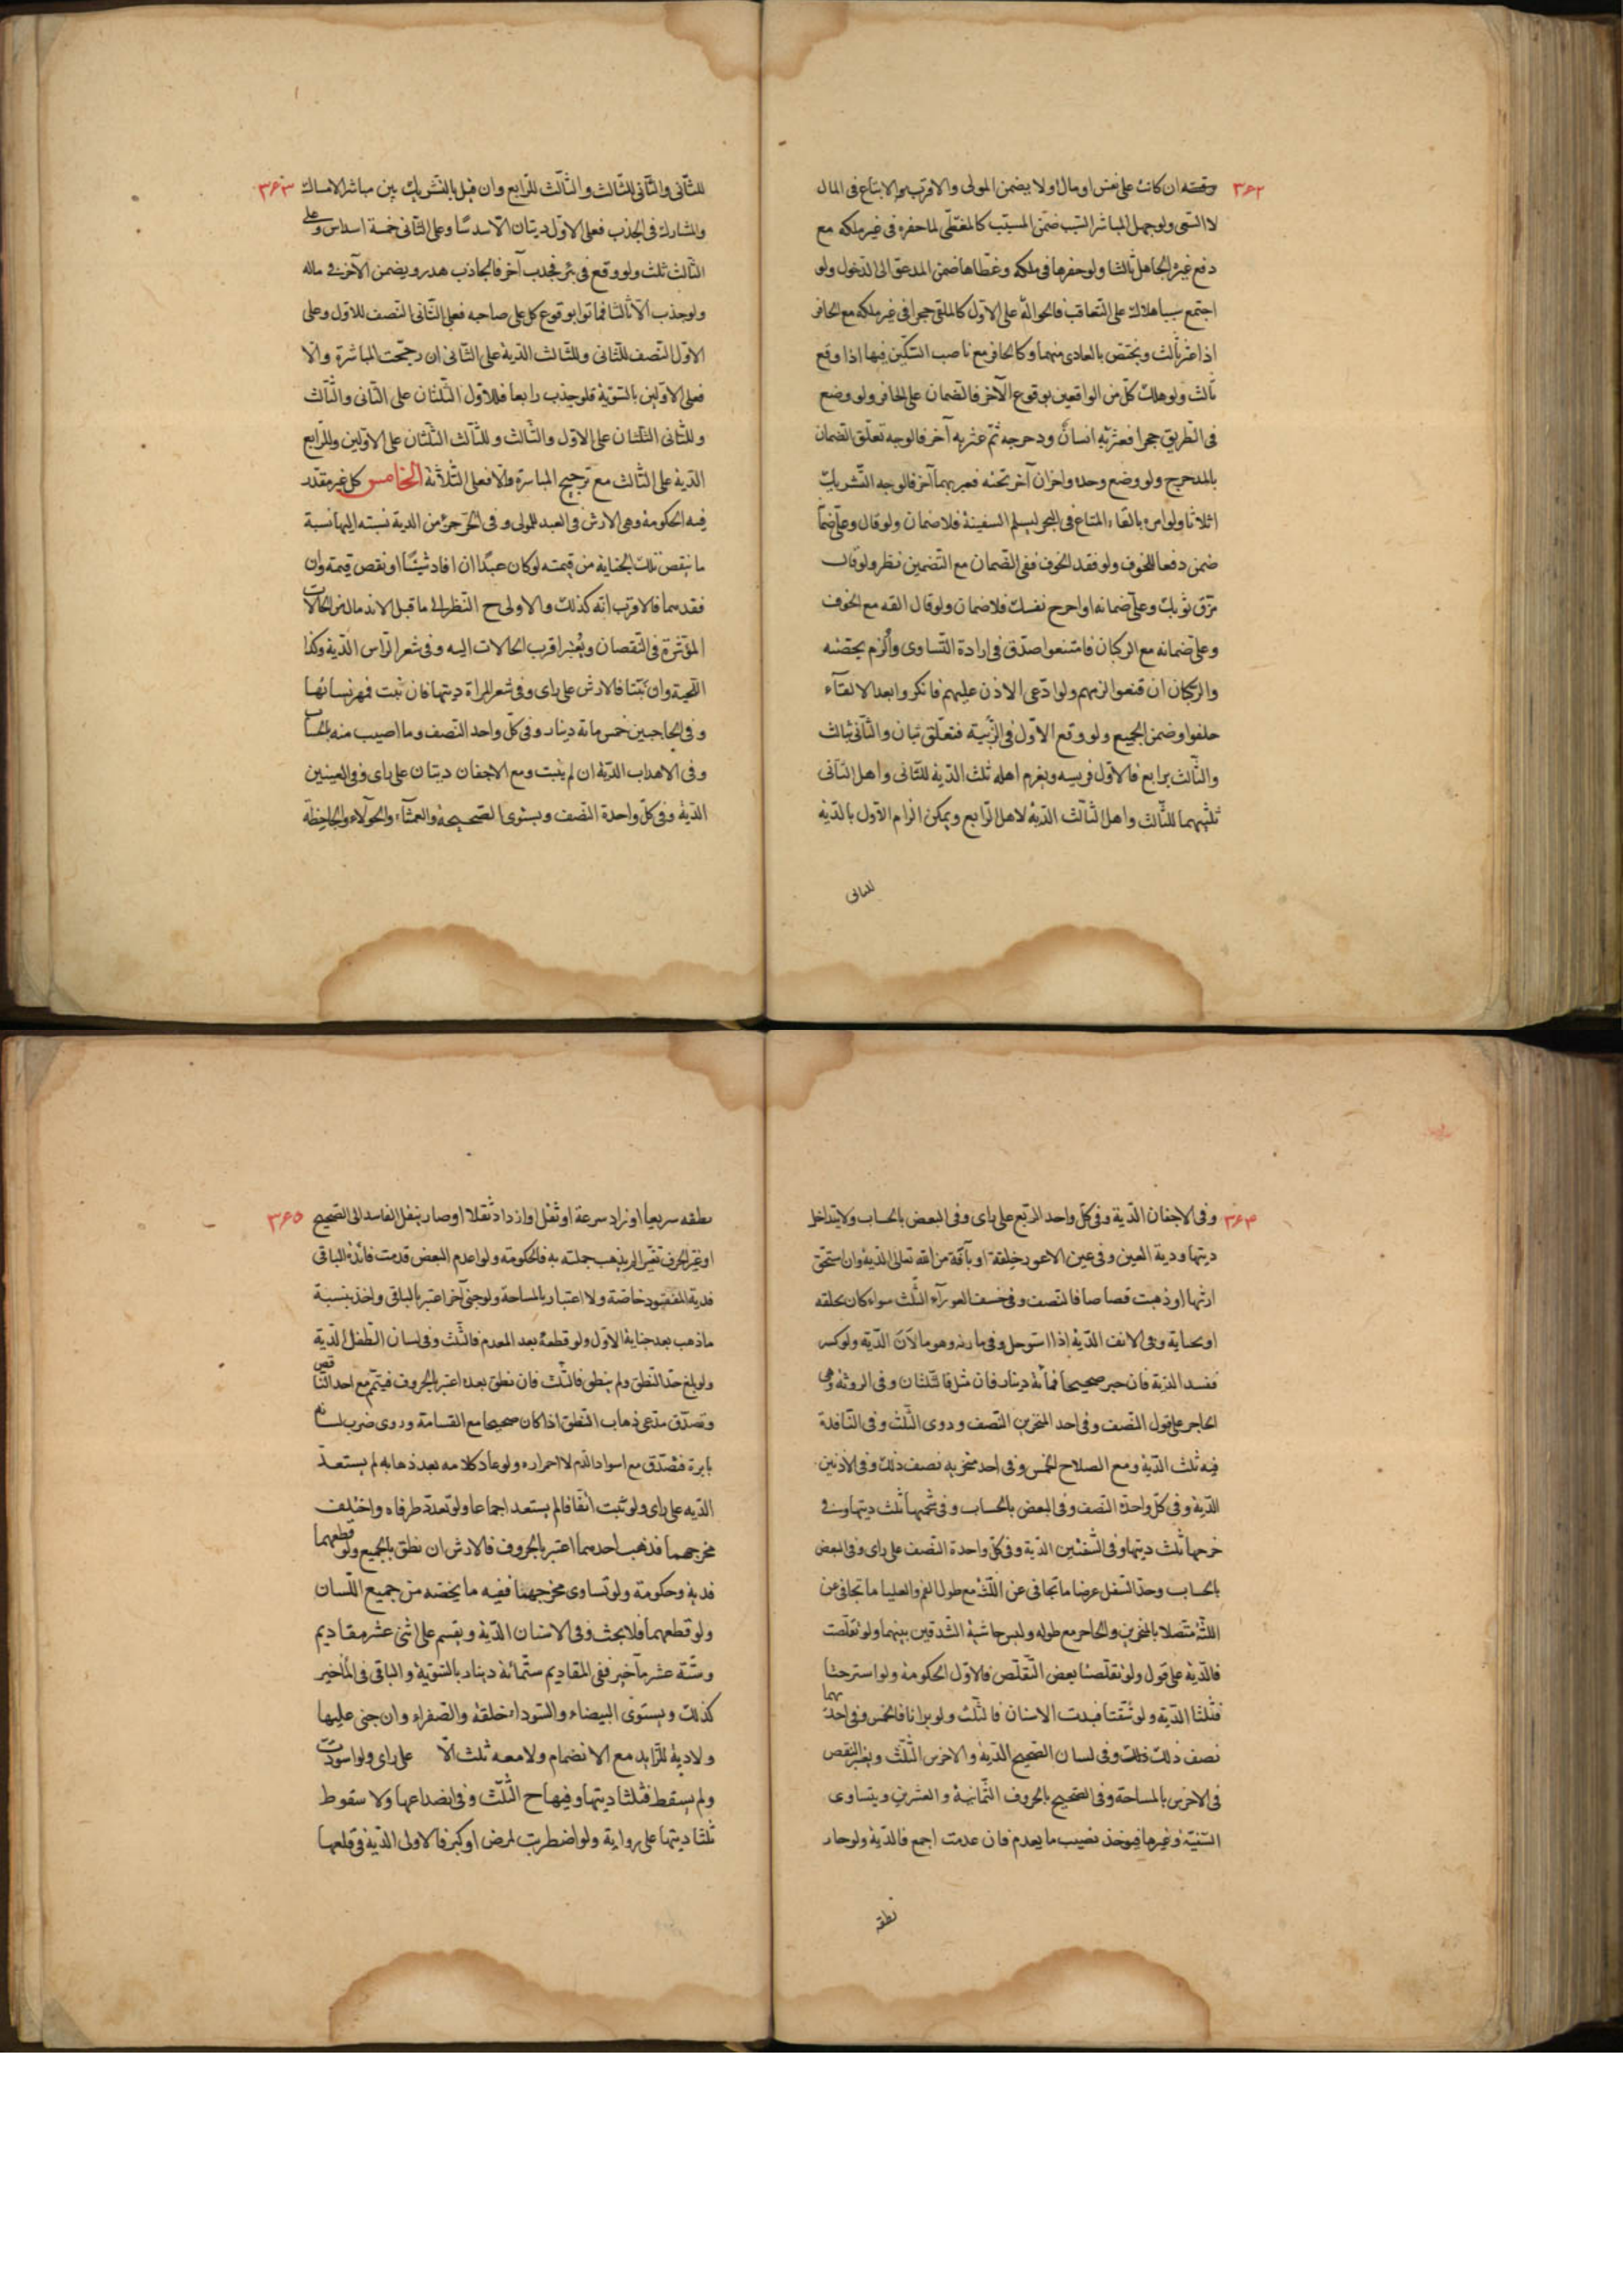 ٣۶٢
وقصته ان كانت على نفس او مال اولا يضمن المولى والاقرب الاتباع فى المال
لا السعى ولو جهل المباشر السبب ضمن المسبب كالمغطى لما حفره فى غير ملكه مع
دفع غيره الجاهل ثالثا ولو حفرها فى ملكه وغطاها ضمن المدعو الى الدخول ولو
اجتمع سببا هلاك على التعاقب فالحوالة على الاول كالملقى حجرا فى غير ملكه مع الحافر
اذا عثر ثالث ويختص بالعادى منهما وكالحافر مع ناصب السكين فيها اذا وقع
ثالث ولو هلك كل من الواقعين بوقوع الآخر فالضمان على الحافر ولو وضع
فى الطريق حجرا فعثر به انسان ودحرجه ثم عثر به آخر فالوجه تعلق الضمان
بالمدحرج ولو وضع وحده واخران آخر تحته فعبر بهما آخر فالوجه التشريك
اثلاثا ولو امره بالقاء المتاع فى البحر ليسلم السفينة فلا ضمان ولو قال وعلى ضمانه
ضمن دفعا للخوف ولو فقد الخوف ففى الضمان مع التضمين نظر ولو قال
مزق ثوبك وعلى ضمانه او اجرح نفسك فلا ضمان ولو قال القه مع الخوف
وعلى ضمانه مع الركبان فامتنعوا صدق فى ارادة التساوى والزم بحصته
والركبان ان قنعوا لزمهم ولو ادعى الاذن عليهم فانكروا بعد الالقاء
حلفوا وضمن الجميع ولو وقع الاول فى الزبية فتعلق بثان والثانى بثالث
والثالث برابع فالاول فريسه ويغرم اهله ثلث الدية للثانى واهل الثانى
ثلثيهما للثالث واهل الثالث الدية لاهل الرابع ويمكن الزام الاول بالدية
للثانى
٣۶٣
للثانى والثانى للثالث والثالث للرابع وان قيل بالتشريك بين مباشر الامساك
والمشارك فى الجذب فعلى الاول ديتان الا سدسا وعلى الثانى خمسة اسداس وعلى
الثالث ثلث ولو وقع فى بئر فجذب آخر فالجاذب هدر ويضمن الآخر فى ماله
ولو جذب الآ ثالثا فماتوا بوقوع كل على صاحبه فعلى الثانى النصف للاول وعلى
الاول النصف للثانى وللثالث الدية على الثانى ان رجحت المباشرة والا
فعلى الاولين بالسوية فلو جذب رابعا فللاول الثلثان على الثانى والثالث
وللثانى الثلثان على الاول والثالث وللثالث الثلثان على الاولين وللرابع
الدية على الثالث مع ترجيح المباشرة والا فعلى الثلاثة الخامس كل غير مقدر
فيه الحكومة وهى الارش فى العبد للمولى وفى الحر جزء من الدية نسبته اليها نسبة
ما ينقص تلك الجناية من قيمته لو كان عبدا ان افاد شيئا او نقص قيمة وان
فقدهما فالاقرب انه كذلك والاولى ح النظر الى ما قبل الاندمال من الحالات
المؤثرة فى النقصان ويعتبر اقرب الحالات اليه وفى شعر الراس الدية وكذا
اللحية وان نبتا فالارش على راى وفى شعر المراة ديتها فان نبت فمهر نسائها
وفى الحاجبين خمس مائة دينار وفى كل واحد النصف وما اصيب منه بالحساب
وفى الاهداب الدية ان لم ينبت ومع الاجفان ديتان على راى وفى العينين
الدية وفى كل واحدة النصف ويستوى الصحيحة والعمشاء والحولاء والجاحظة
٣۶۴
وفى الاجفان الدية وفى كل واحد الربع على راى وفى البعض بالحساب ولا يتداخل
ديتها ودية العين وفى عين الاعور خلقة او بآفة من الله تعالى الدية وان استحق
ارشها او ذهبت قصاصا فالنصف وفى خسف العوراء الثلث سواء كان بخلقه
او بجناية وفى الانف الدية اذا استوصل وفى مارنه وهو مالان الدية ولو كسر
ففسد الدية فان جبر صحيحا فمائة دينار فان شل فالثلثان وفى الروثة وهى
الحاجز على قول النصف وفى احد المنخرين النصف وروى الثلث وفى النافذة
فيه ثلث الدية ومع الصلاح الخمس وفى احد منخريه نصف ذلك وفى الاذنين
الدية وفى كل واحدة النصف وفى البعض بالحساب وفى شحمتها ثلث ديتها وفى
خرمها ثلث ديتها وفى الشفتين الدية وفى كل واحدة النصف على راى وفى البعض
بالحساب وحد السفلى عرضا ما تجافى عن اللثة مع طول الفم والعليا ما تجافى عن
اللثة متصلا بالمنخرين والحاجز مع طوله وليس حاشية الشدقين بينهما ولو تقلصت
فالدية على قول ولو تقلصتا بعض التقلص فالاول الحكومة ولو استرختا
فثلثا الدية ولو شقتا فبدت الاسنان فالثلث ولو برانا فالخمس وفى احدهما
نصف ذلك وفى لسان الصحيح الدية والاخرس الثلث ويعتبر النقص
فى الاخرس بالمساحة وفى الصحيح بالحروف الثمانية والعشرين ويتساوى
السنية وغيرها فيوخذ نصيب ما يعدم فان عدمت اجمع فالدية ولو صار
نطقه
٣۶٥
نطقه سريعا او زاد سرعة او ثقل او ازداد ثقلا او صار ينقل الفاسد الى الصحيح
او غير الحرف تغيرا لم يذهب جملته به فالحكومة ولو اعدم البعض قدمت فائدة الباقى
فدية المفقود خاصة ولا اعتبار بالمساحة ولو جنى آخر اعتبر بالباقى واخذ بنسبة
ما ذهب بعد جناية الاول ولو قطعه بعد المعدم فالثلث وفى لسان الطفل الدية
ولو بلغ حد النطق ولم ينطق فالثلث فان نطق بعده اعتبر بالحروف فيتم مع احد التناقص
وتصدق مدعى ذهاب النطق اذا كان صحيحا مع القسامة وروى ضرب لسانه
بابرة فتصدق مع اسوداد الدم لا احمراره ولو عاد كلامه بعد ذهابه لم يستعد
الدية على راى ولو نبت اتفاقا لم يستعد اجماعا ولو تعدد طرفاه واختلف
مخرجهما فذهب احدهما اعتبر بالحروف فالارش ان نطق بالجميع ولو قطعهما
فدية وحكومة ولو تساوى مخرجهما ففيه ما يخصه من جميع اللسان
ولو قطعهما فلا بحث وفى الاسنان الدية ويقسم على اثنى عشر مقاديم
وستة عشر مآخير ففى المقاديم ستمائة دينار بالسوية والباقى فى المآخير
كذلك ويستوى البيضاء والسوداء خلقة والصفراء وان جنى عليها
ولا دية للزايد مع الانضمام ولا معه ثلث الا على راى ولو اسودت
ولم يسقط فثلثا ديتها وفيها ح الثلث وفى انصداعها ولا سقوط
ثلثا ديتها على رواية ولو اضطربت لمرض او كبر فالاولى الدية فى قلعها